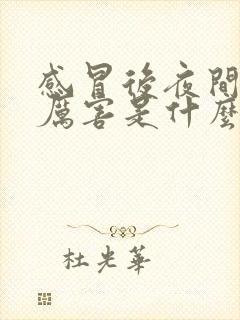 感冒後夜間
厲害是什麼
杜光華